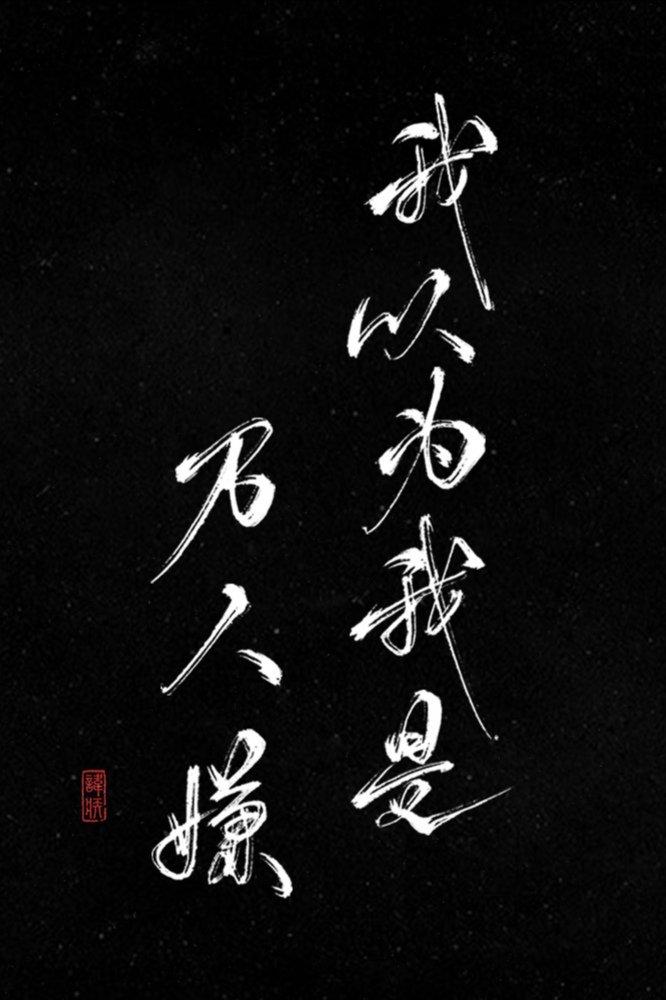 我以为我是
万人嫌